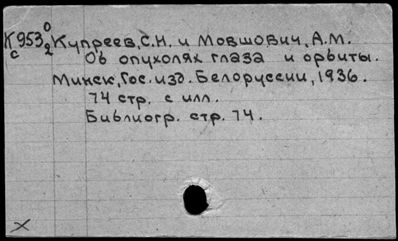 К 953 0/2 Купреев, С.Н. и Мовшович, А.М.
с Об опухолях глаза и орбиты.
Минск, Гос. изд. Белоруссии, 1936.
74 стр. с илл.
Библиогр. стр. 74.